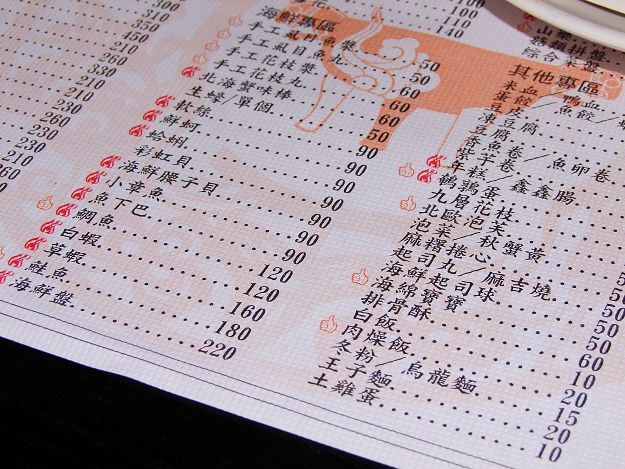 300
100
210
350
450
210
310
330
330
100
110
100
140
海鮮專區
手工虱目魚漿
手工虱目魚丸 50
手工花枝漿 60
手工花枝丸 60
北海蟹味棒 60
生蠔/單個 50
軟絲 90
鮮蚵 90
蛤蜊 90
彩虹貝 90
海鮮腰子貝 90
小章魚 90
魚下巴 120
鯛魚 120
白蝦 160
草蝦 180
鮭魚 220
海鮮盤
綜合菜盤
其他專區
米血/鴨血
蛋餃/魚餃
豆皮
凍豆腐
香魚卷/魚卵卷
年糕/鑫鑫腸
鵪鶉蛋
九層花枝
北歐泡芙
泡菜 秋蟹黃
麻糬捲心
起司丸/麻吉燒
海鮮起司球
海綿寶寶 50
排骨酥 60
白飯 10
肉燥飯 20
冬粉/烏龍麵 15
王子麵 20
土雞蛋 10